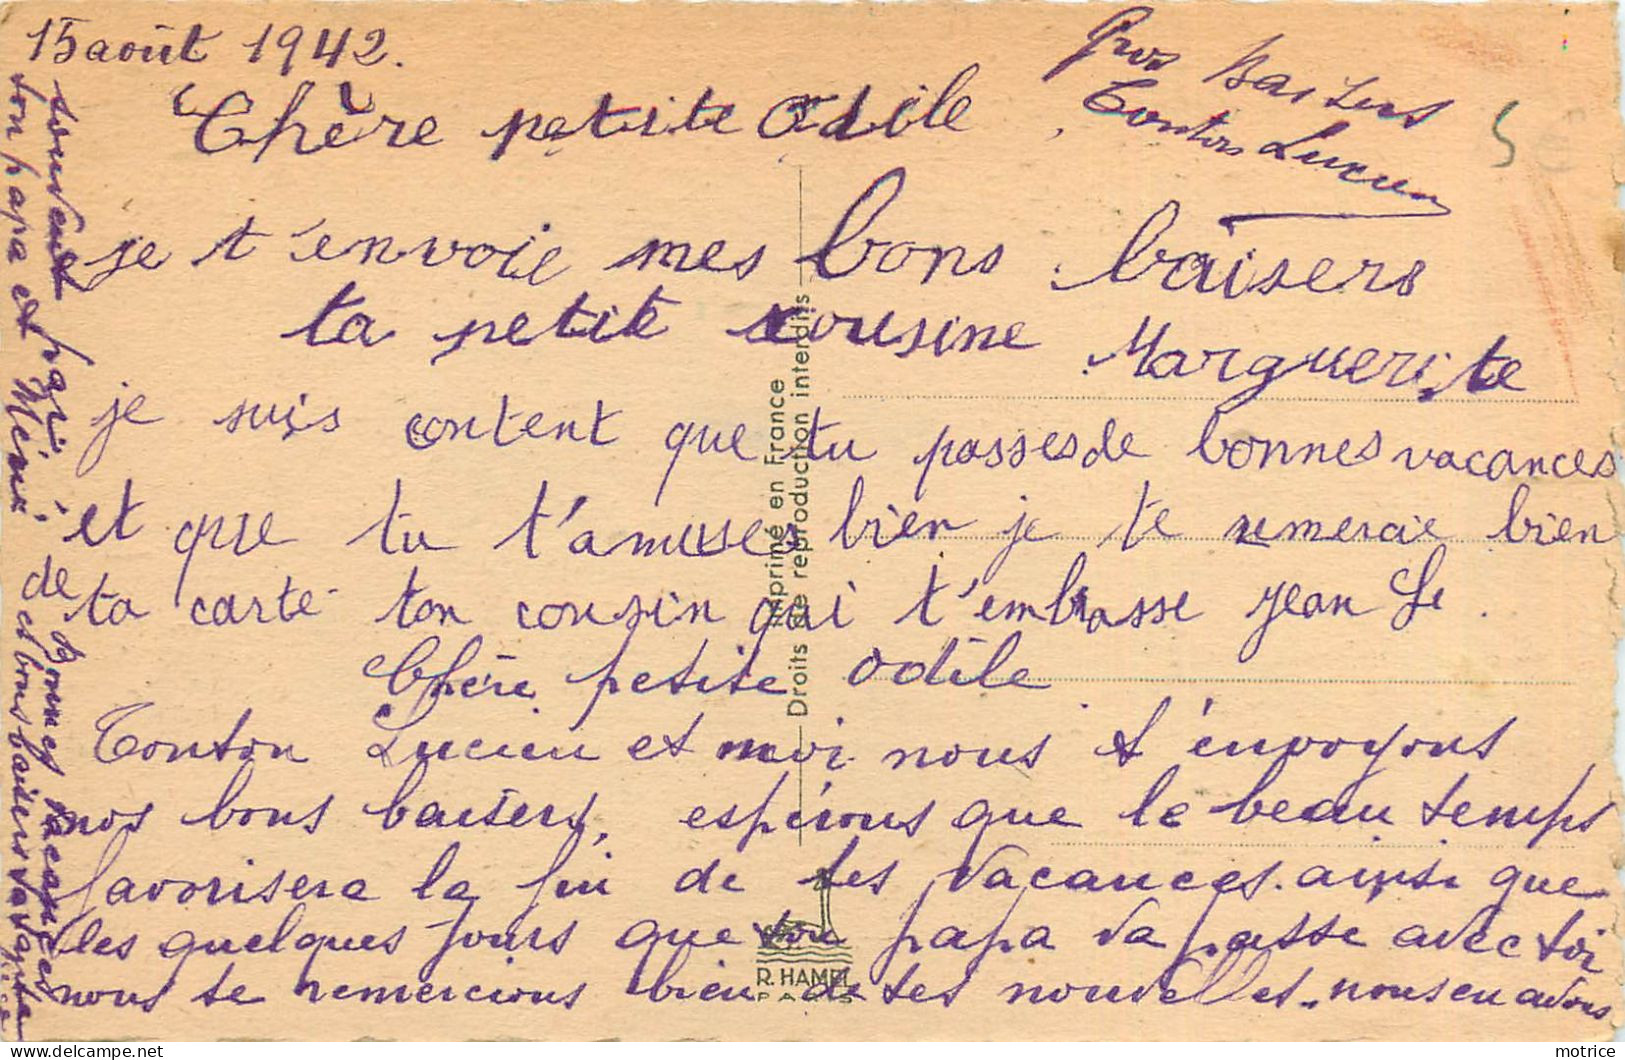 15 août 1942.
Gros Baisers
Tonton Lucien
Chère petite Odile
je t'envoie mes bons baisers
ta petite cousine Marguerite
je suis content que tu passes de bonnes vacances
et que tu t'amuses bien je te remercie bien
ta carte ton cousin qui t'embrasse Jean
Chère petite Odile
Tonton Lucien et moi nous t'envoyons
nos bons baisers, espérons que le beau temps
favorisera la fin de tes vacances. ainsi que
les quelques jours que ton papa va passer avec toi
nous te remercions bien de tes nouvelles. nous en avons
souvent par
ton papa et Mémé,
de Bonnes vacances
et bons baisers ta
Imprimé en France
Droits de reproduction interdits
R. HAMEL
PARIS
5
delcampe.net
motrice